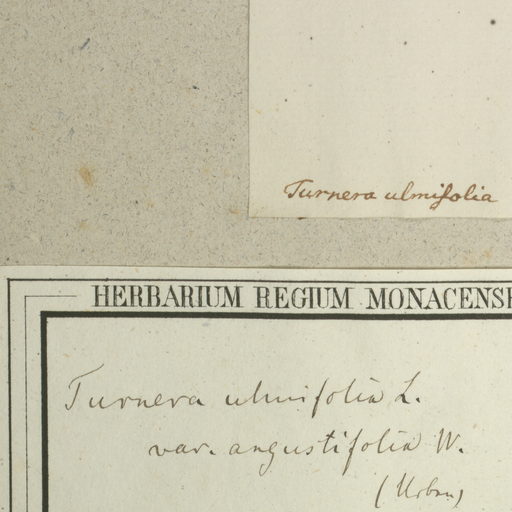 Turnera ulmifolia
HERBARIUM REGIUM MONACENSE
Turnera ulmifolia L.
var. angustifolia W.
(Urban)